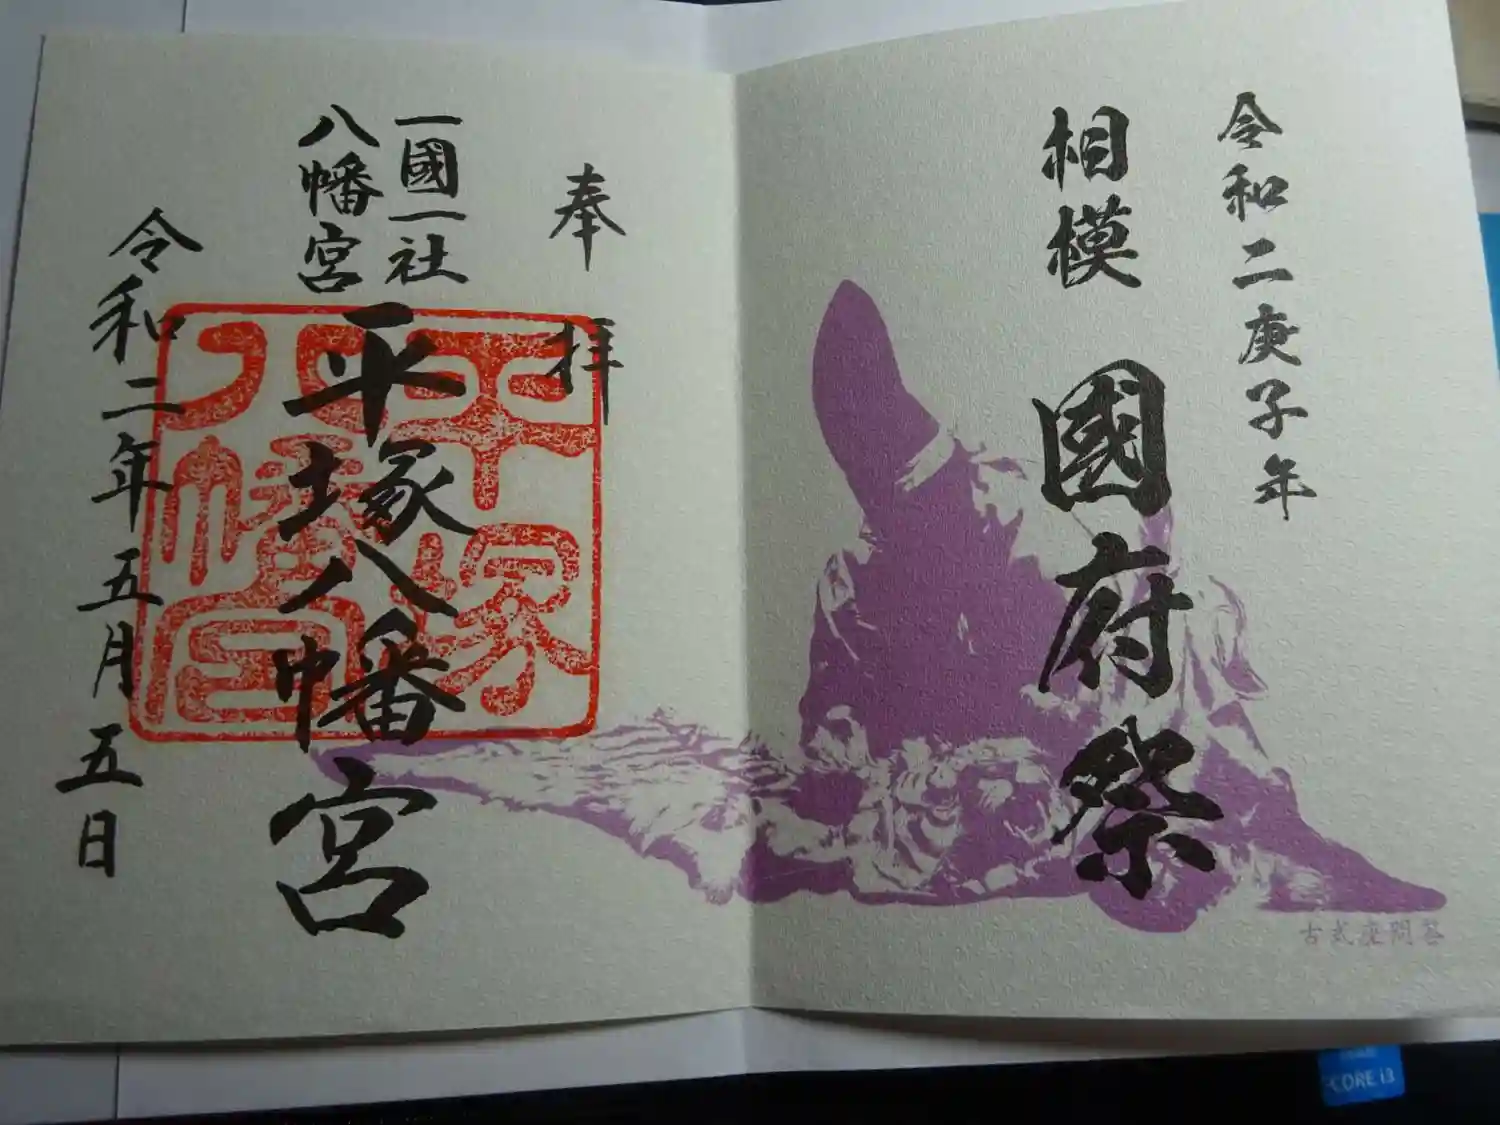 令和二庚子年
相模 國府祭
古式座問答
奉拝
一國一社
八幡宮
平塚八幡宮
平塚
八幡宮
令和二年五月五日
CORE i3